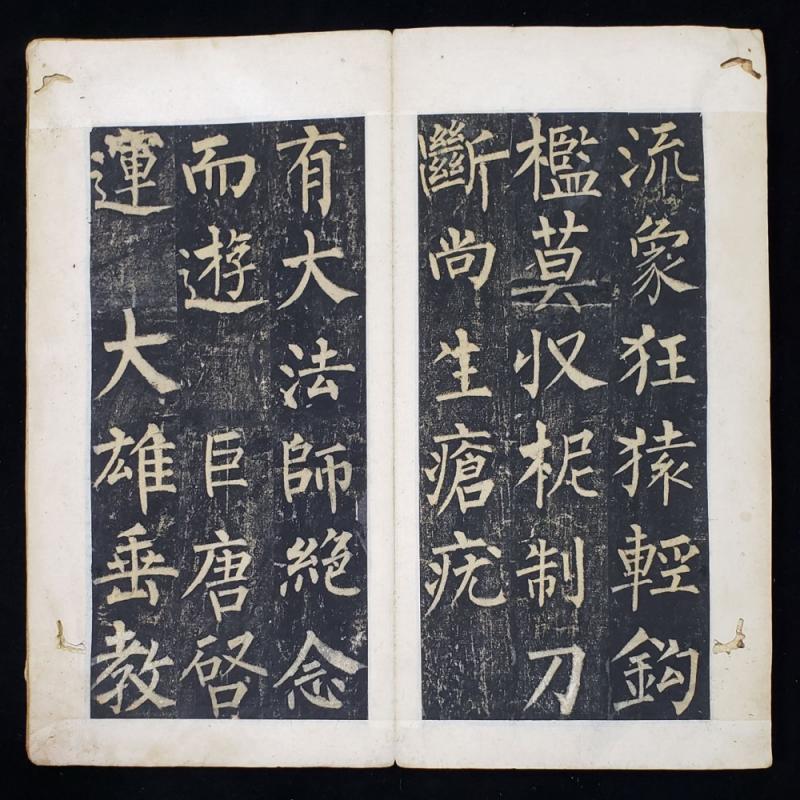 流象狂猿輕鉤
檻莫収柅制刀
斷尚生瘡疣
有大法師絕念
而遊　巨唐啓
運　大雄垂教